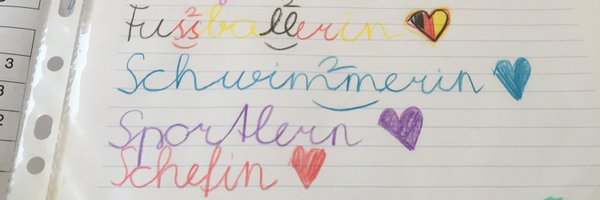 Fussballerin
Schwimmerin
Sportlern
Schefin
3
3
2